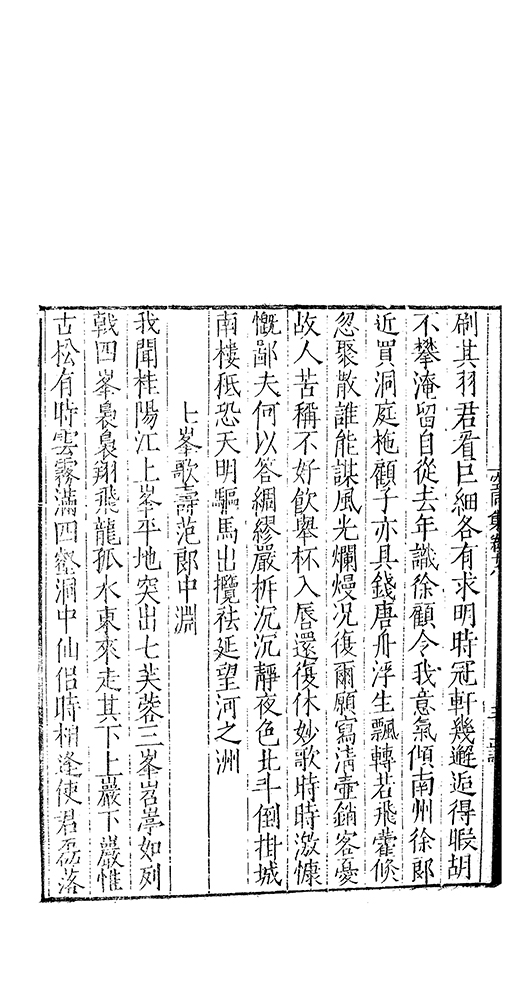 刷其羽君看巨細各有求明時冠軒幾邂逅得暇胡
不攀淹留自從去年識徐顧令我意氣傾南州徐郎
近買洞庭柂顧子亦具錢唐舟浮生飄轉若飛藿倏
忽聚散誰能謀風光爛熳况復爾願寫清壺銷客憂
故人苦稱不好飲舉杯入唇還復休妙歌時時激慷
慨鄙夫何以答綢繆嚴柝沉沉靜夜色北斗倒掛城
南樓秪恐天明驅馬出攬袪延望河之洲
七峯歌壽范郎中淵
我聞桂陽江上峯平地突出七芙蓉三峯岧嵉如列
戟四峯裊裊翔飛龍孤水東來走其下上巖下巖惟
古松有時雲霧滿四壑洞中仙侶時相逢使君磊落